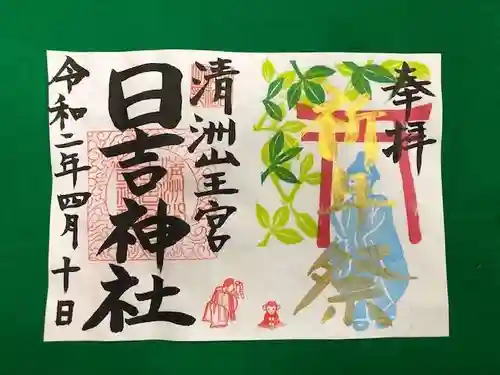 奉拝
祈年祭
清洲山王宮
日吉神社
令和二年四月十日